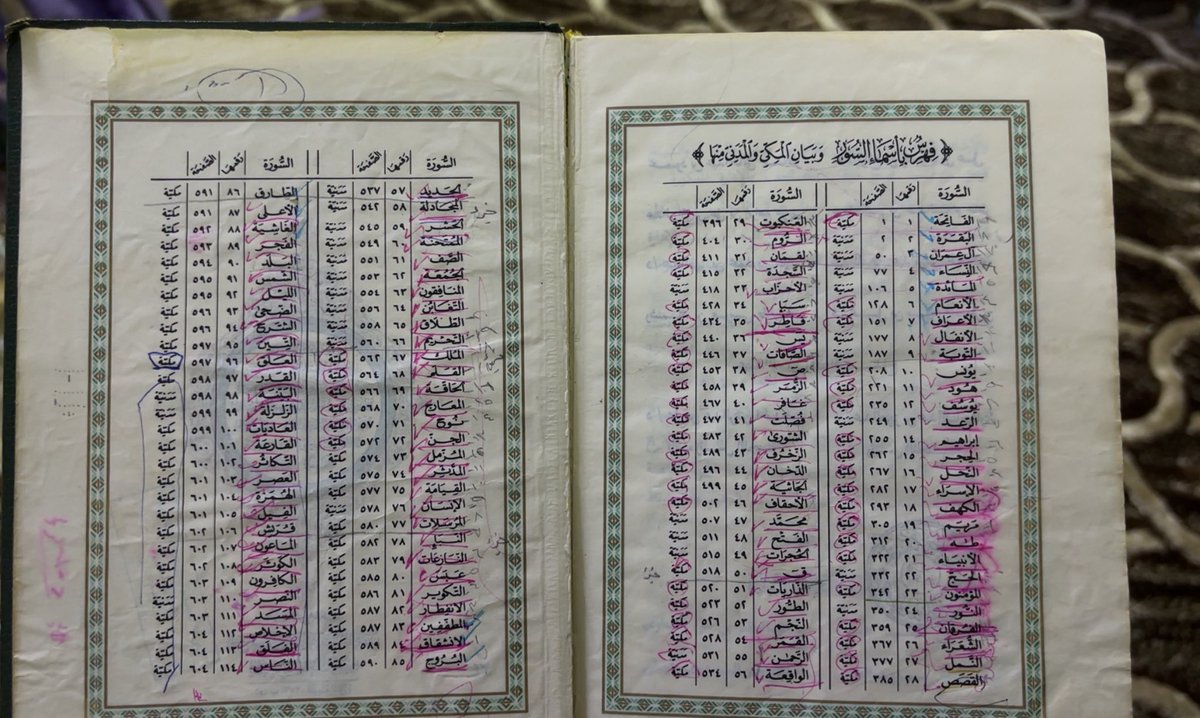 ﴿ فهرس بأسماء السور وبيان المكي والمدني منها ﴾
السورة رقمها الصفحة
الفاتحة ١ ١ مكية
البقرة ٢ ٢ مدنية
آل عمران ٣ ٥٠ مدنية
النساء ٤ ٧٧ مدنية
المائدة ٥ ١٠٦ مدنية
الأنعام ٦ ١٢٨ مكية
الأعراف ٧ ١٥١ مكية
الأنفال ٨ ١٧٧ مدنية
التوبة ٩ ١٨٧ مدنية
يونس ١٠ ٢٠٨ مكية
هود ١١ ٢٢١ مكية
يوسف ١٢ ٢٣٥ مكية
الرعد ١٣ ٢٤٩ مدنية
إبراهيم ١٤ ٢٥٥ مكية
الحجر ١٥ ٢٦٢ مكية
النحل ١٦ ٢٦٧ مكية
الإسراء ١٧ ٢٨٢ مكية
الكهف ١٨ ٢٩٣ مكية
مريم ١٩ ٣٠٥ مكية
طه ٢٠ ٣١٢ مكية
الأنبياء ٢١ ٣٢٢ مكية
الحج ٢٢ ٣٣٢ مدنية
المؤمنون ٢٣ ٣٤٢ مكية
النور ٢٤ ٣٥٠ مدنية
الفرقان ٢٥ ٣٥٩ مكية
الشعراء ٢٦ ٣٦٧ مكية
النمل ٢٧ ٣٧٧ مكية
القصص ٢٨ ٣٨٥ مكية
السورة رقمها الصفحة
العنكبوت ٢٩ ٣٩٦ مكية
الروم ٣٠ ٤٠٤ مكية
لقمان ٣١ ٤١١ مكية
السجدة ٣٢ ٤١٥ مكية
الأحزاب ٣٣ ٤١٨ مدنية
سبأ ٣٤ ٤٢٨ مكية
فاطر ٣٥ ٤٣٤ مكية
يس ٣٦ ٤٤٠ مكية
الصافات ٣٧ ٤٤٦ مكية
ص ٣٨ ٤٥٣ مكية
الزمر ٣٩ ٤٥٨ مكية
غافر ٤٠ ٤٦٧ مكية
فصلت ٤١ ٤٧٧ مكية
الشورى ٤٢ ٤٨٣ مكية
الزخرف ٤٣ ٤٨٩ مكية
الدخان ٤٤ ٤٩٦ مكية
الجاثية ٤٥ ٤٩٩ مكية
الأحقاف ٤٦ ٥٠٢ مكية
محمد ٤٧ ٥٠٧ مدنية
الفتح ٤٨ ٥١١ مدنية
الحجرات ٤٩ ٥١٥ مدنية
ق ٥٠ ٥١٨ مكية
الذاريات ٥١ ٥٢٠ مكية
الطور ٥٢ ٥٢٣ مكية
النجم ٥٣ ٥٢٦ مكية
القمر ٥٤ ٥٢٨ مكية
الرحمن ٥٥ ٥٣١ مدنية
الواقعة ٥٦ ٥٣٤ مكية
السورة رقمها الصفحة
الحديد ٥٧ ٥٣٧ مدنية
المجادلة ٥٨ ٥٤٢ مدنية
الحشر ٥٩ ٥٤٥ مدنية
الممتحنة ٦٠ ٥٤٩ مدنية
الصف ٦١ ٥٥١ مدنية
الجمعة ٦٢ ٥٥٣ مدنية
المنافقون ٦٣ ٥٥٤ مدنية
التغابن ٦٤ ٥٥٦ مدنية
الطلاق ٦٥ ٥٥٨ مدنية
التحريم ٦٦ ٥٦٠ مدنية
الملك ٦٧ ٥٦٢ مكية
القلم ٦٨ ٥٦٤ مكية
الحاقة ٦٩ ٥٦٦ مكية
المعارج ٧٠ ٥٦٨ مكية
نوح ٧١ ٥٧٠ مكية
الجن ٧٢ ٥٧٢ مكية
المزمل ٧٣ ٥٧٤ مكية
المدثر ٧٤ ٥٧٥ مكية
القيامة ٧٥ ٥٧٧ مكية
الإنسان ٧٦ ٥٧٨ مدنية
المرسلات ٧٧ ٥٨٠ مكية
النبأ ٧٨ ٥٨٢ مكية
النازعات ٧٩ ٥٨٣ مكية
عبس ٨٠ ٥٨٥ مكية
التكوير ٨١ ٥٨٦ مكية
الانفطار ٨٢ ٥٨٧ مكية
المطففين ٨٣ ٥٨٧ مكية
الانشقاق ٨٤ ٥٨٩ مكية
البروج ٨٥ ٥٩٠ مكية
السورة رقمها الصفحة
الطارق ٨٦ ٥٩١ مكية
الأعلى ٨٧ ٥٩١ مكية
الغاشية ٨٨ ٥٩٢ مكية
الفجر ٨٩ ٥٩٣ مكية
البلد ٩٠ ٥٩٤ مكية
الشمس ٩١ ٥٩٥ مكية
الليل ٩٢ ٥٩٥ مكية
الضحى ٩٣ ٥٩٦ مكية
الشرح ٩٤ ٥٩٦ مكية
التين ٩٥ ٥٩٧ مكية
العلق ٩٦ ٥٩٧ مكية
القدر ٩٧ ٥٩٨ مكية
البينة ٩٨ ٥٩٨ مدنية
الزلزلة ٩٩ ٥٩٩ مدنية
العاديات ١٠٠ ٥٩٩ مكية
القارعة ١٠١ ٦٠٠ مكية
التكاثر ١٠٢ ٦٠٠ مكية
العصر ١٠٣ ٦٠١ مكية
الهمزة ١٠٤ ٦٠١ مكية
الفيل ١٠٥ ٦٠١ مكية
قريش ١٠٦ ٦٠٢ مكية
الماعون ١٠٧ ٦٠٢ مكية
الكوثر ١٠٨ ٦٠٢ مكية
الكافرون ١٠٩ ٦٠٣ مكية
النصر ١١٠ ٦٠٣ مدنية
المسد ١١١ ٦٠٣ مكية
الإخلاص ١١٢ ٦٠٤ مكية
الفلق ١١٣ ٦٠٤ مكية
الناس ١١٤ ٦٠٤ مكية